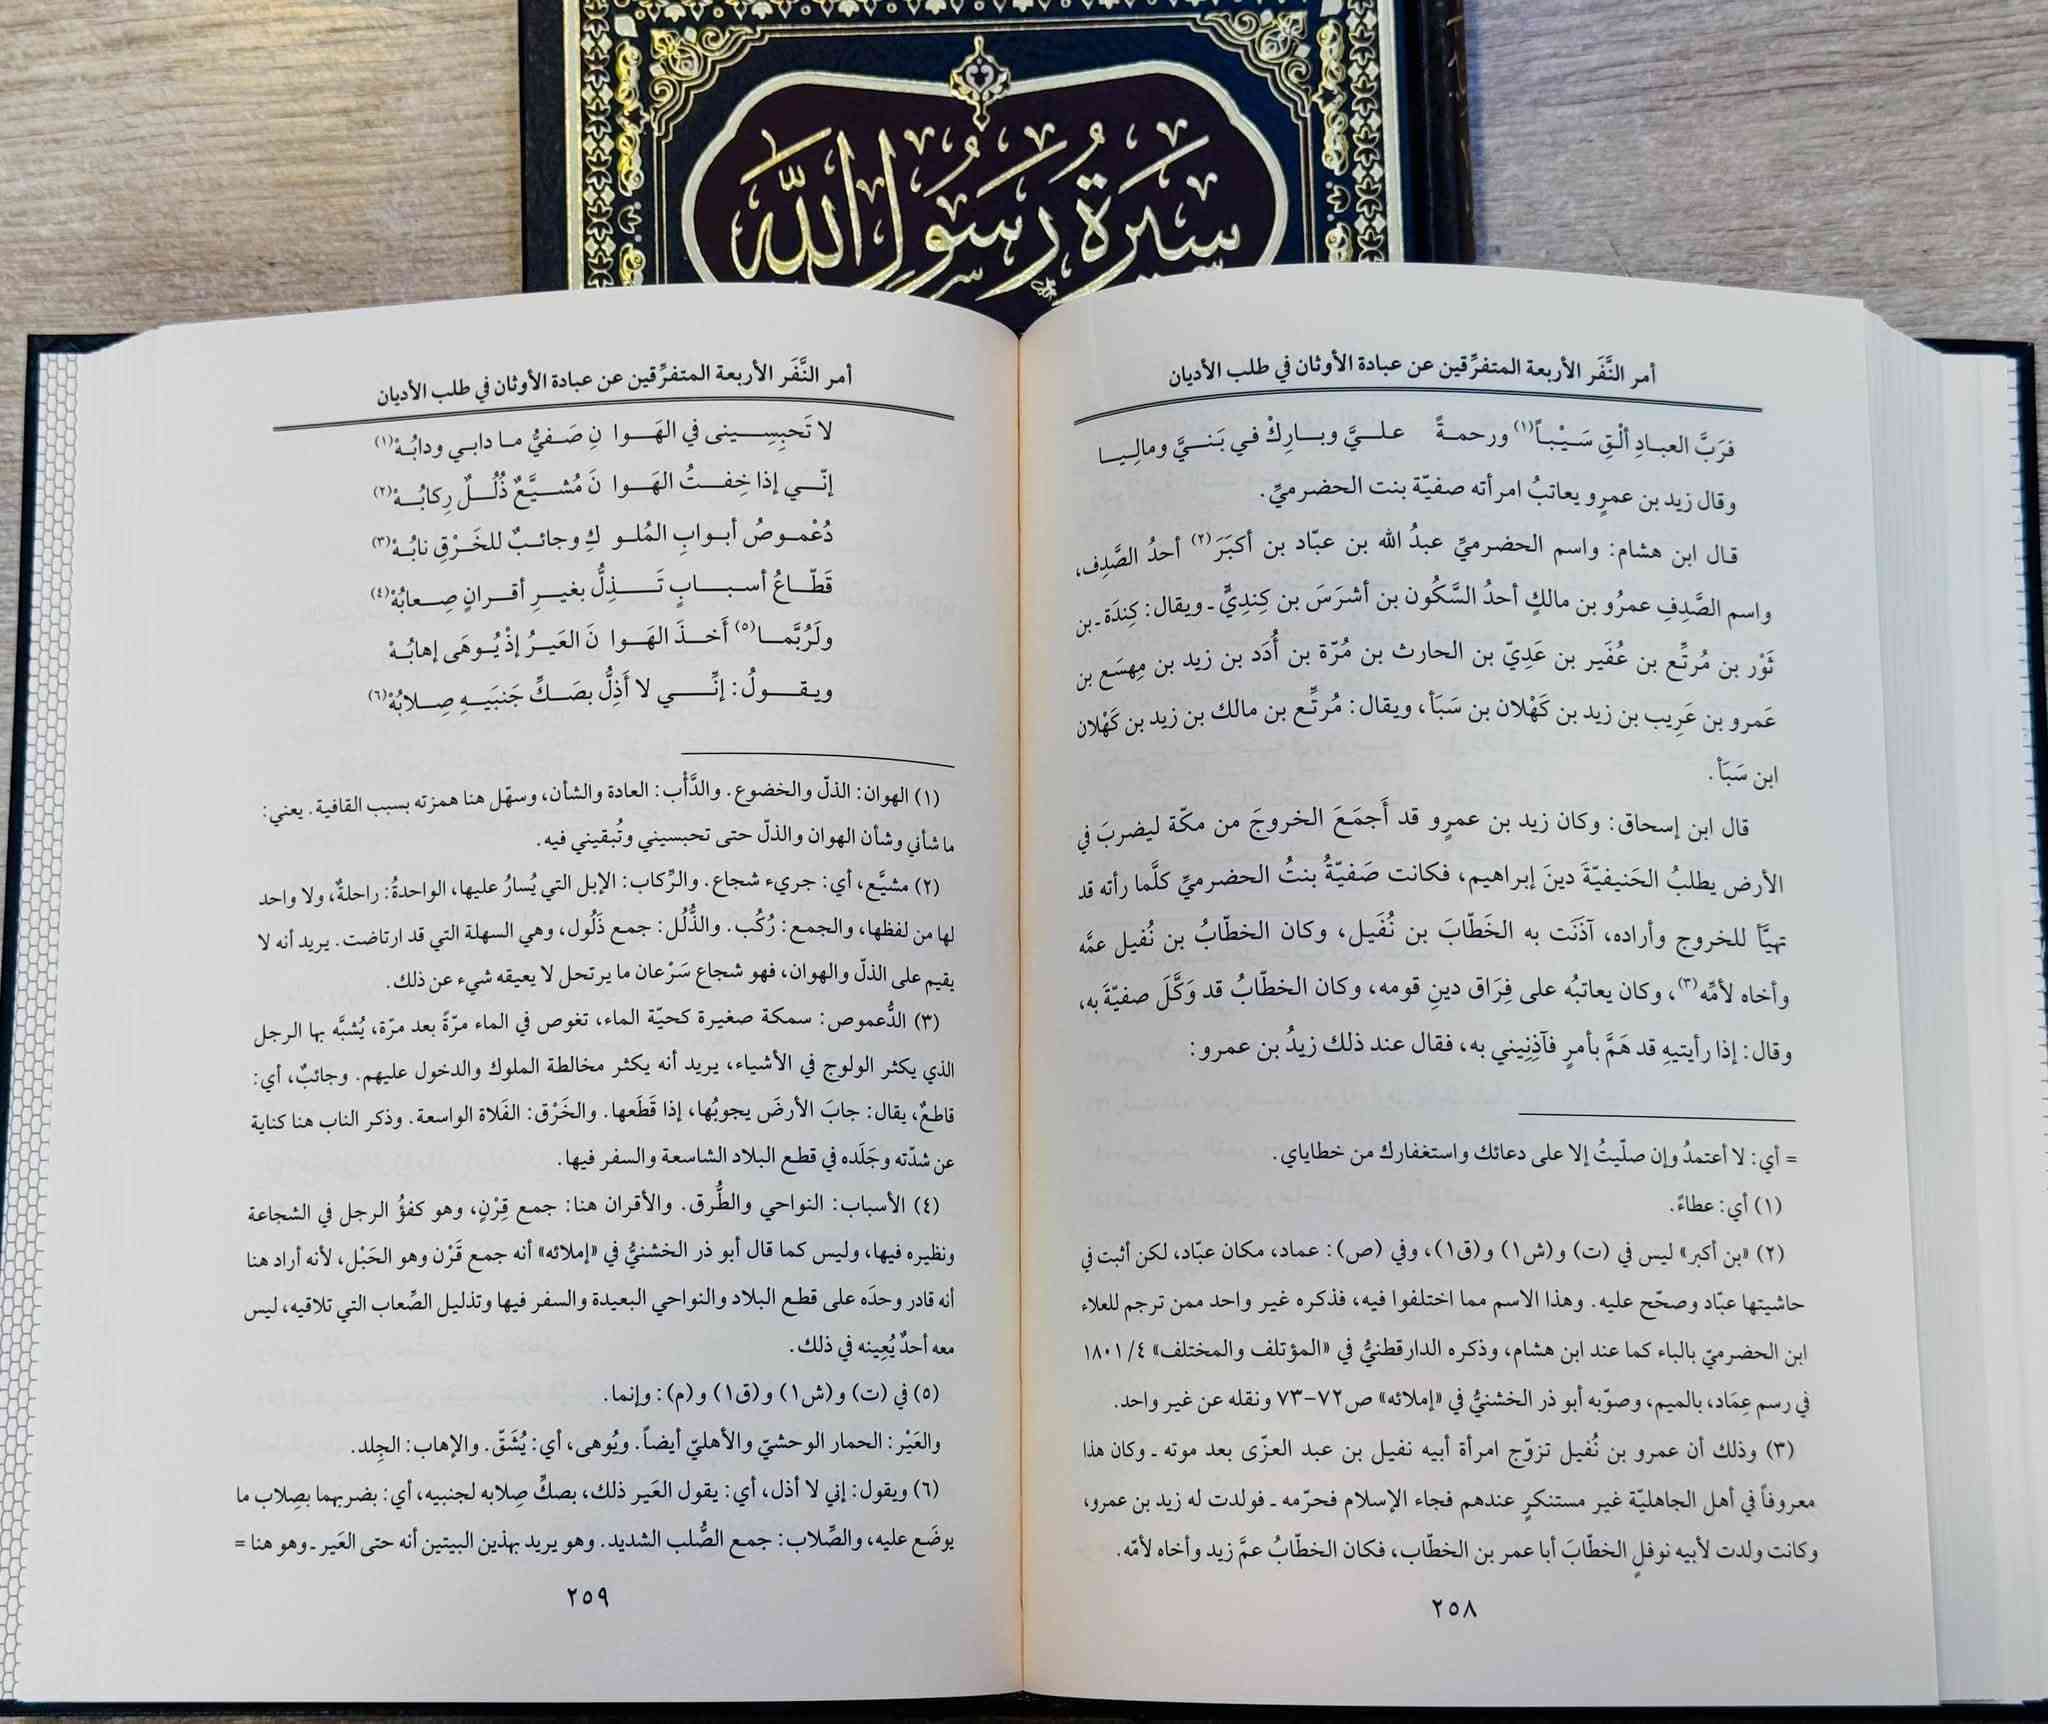 سيرة رسول الله
أمر النَّفَر الأربعة المتفرِّقين عن عبادة الأوثان في طلب الأديان
فرَبَّ العبادِ ألْقِ سَيْباً(١) ورحمةً علـيَّ وبارِكْ في بَنـيَّ ومالِيـا
وقال زيد بن عمرٍو يعاتبُ امرأته صفيّة بنت الحضرميِّ.
قال ابن هشام: واسم الحضرميِّ عبدُ الله بن عبّاد بن أكبَرَ(٢) أحدُ الصَّدِف،
واسم الصَّدِفِ عمرُو بن مالكٍ أحدُ السَّكُون بن أشرَسَ بن كِندِيٍّ ـ ويقال: كِندَة ـ بن
ثَوْر بن مُرتِّع بن عُفَير بن عَدِيّ بن الحارث بن مُرّة بن أُدَد بن زيد بن مِهسَع بن
عَمرو بن عَرِيب بن زيد بن كَهْلان بن سَبَأ، ويقال: مُرتِّع بن مالك بن زيد بن كَهْلان
ابن سَبَأ.
قال ابن إسحاق: وكان زيد بن عمرٍو قد أَجمَعَ الخروجَ من مكّة ليضربَ في
الأرض يطلبُ الحَنيفيّةَ دينَ إبراهيم، فكانت صَفيّةُ بنتُ الحضرميِّ كلَّما رأته قد
تهيَّأ للخروج وأراده، آذَنَت به الخَطّابَ بن نُفَيل، وكان الخطّابُ بن نُفيل عمَّه
وأخاه لأمِّه(٣)، وكان يعاتبُه على فِرَاق دينِ قومه، وكان الخطّابُ قد وَكَّلَ صفيّةَ به،
وقال: إذا رأيتيهِ قد هَمَّ بأمرٍ فآذِنِيني به، فقال عند ذلك زيدُ بن عمرو:
= أي: لا أعتمدُ وإن صلّيتُ إلا على دعائك واستغفارك من خطاياي.
(١) أي: عطاءً.
(٢) «بن أكبر» ليس في (ت) و(ش١) و(ق١)، وفي (ص): عماد، مكان عبّاد، لكن أثبت في
حاشيتها عبّاد وصحّح عليه. وهذا الاسم مما اختلفوا فيه، فذكره غير واحد ممن ترجم للعلاء
ابن الحضرميّ بالباء كما عند ابن هشام، وذكره الدارقطنيُّ في «المؤتلف والمختلف» ٤/ ١٨٠١
في رسم عِمَاد، بالميم، وصوّبه أبو ذر الخشنيُّ في «إملائه» ص٧٢-٧٣ ونقله عن غير واحد.
(٣) وذلك أن عمرو بن نُفيل تزوّج امرأة أبيه نفيل بن عبد العزّى بعد موته ـ وكان هذا
معروفاً في أهل الجاهليّة غير مستنكرٍ عندهم فجاء الإسلام فحرّمه ـ فولدت له زيد بن عمرو،
وكانت ولدت لأبيه نوفلٍ الخطّابَ أبا عمر بن الخطّاب، فكان الخطّابُ عمَّ زيد وأخاه لأمّه.
٢٥٨
أمر النَّفَر الأربعة المتفرِّقين عن عبادة الأوثان في طلب الأديان
لا تَحبِسِـيني في الهَـوا نِ صَـفيُّ مـا دابـي ودابُـهْ(١)
إنّـي إذا خِفـتُ الهَـوا نَ مُشـيَّعٌ ذُلُـلٌ رِكابُـهْ(٢)
دُعْمـوصُ أبـوابِ المُلـو كِ وجائـبٌ للخَـرْقِ نابُـهْ(٣)
قَطّـاعُ أسـبابٍ تَـذِلُّ بغيـرِ أقـرانٍ صِـعابُهْ(٤)
ولَرُبَّمـا(٥) أَخـذَ الهَـوا نَ العَيـرُ إذْ يُـوهَى إهابُـهْ
ويـقـولُ: إنّـي لا أَذِلُّ بصَـكِّ جَنبَيـهِ صِـلابُهْ(٦)
(١) الهوان: الذلّ والخضوع. والدَّأْب: العادة والشأن، وسهّل هنا همزته بسبب القافية. يعني:
ما شأني وشأن الهوان والذلّ حتى تحبسيني وتُبقيني فيه.
(٢) مشيَّع، أي: جريء شجاع. والرِّكاب: الإبل التي يُسارُ عليها، الواحدةُ: راحلةٌ، ولا واحد
لها من لفظها، والجمع: رُكُب. والذُّلُل: جمع ذَلُول، وهي السهلة التي قد ارتاضت. يريد أنه لا
يقيم على الذلّ والهوان، فهو شجاع سَرْعان ما يرتحل لا يعيقه شيء عن ذلك.
(٣) الدُّعموص: سمكة صغيرة كحيّة الماء، تغوص في الماء مرّةً بعد مرّة، يُشبَّه بها الرجل
الذي يكثر الولوج في الأشياء، يريد أنه يكثر مخالطة الملوك والدخول عليهم. وجائبٌ، أي:
قاطعٌ، يقال: جابَ الأرضَ يجوبُها، إذا قَطَعها. والخَرْق: الفَلاة الواسعة. وذكر الناب هنا كناية
عن شدّته وجَلَده في قطع البلاد الشاسعة والسفر فيها.
(٤) الأسباب: النواحي والطُّرق. والأقران هنا: جمع قِرْنٍ، وهو كفؤُ الرجل في الشجاعة
ونظيره فيها، وليس كما قال أبو ذر الخشنيُّ في «إملائه» أنه جمع قَرْن وهو الحَبْل، لأنه أراد هنا
أنه قادر وحدَه على قطع البلاد والنواحي البعيدة والسفر فيها وتذليل الصِّعاب التي تلاقيه، ليس
معه أحدٌ يُعِينه في ذلك.
(٥) في (ت) و(ش١) و(ق١) و(م): وإنما.
والعَيْر: الحمار الوحشيّ والأهليّ أيضاً. ويُوهى، أي: يُشَقّ. والإهاب: الجِلد.
(٦) ويقول: إني لا أذل، أي: يقول العَير ذلك، بصكِّ صِلابه لجنبيه، أي: بضربهما بصِلاب ما
يوضَع عليه، والصِّلاب: جمع الصُّلب الشديد. وهو يريد بهذين البيتين أنه حتى العَير ـ وهو هنا =
٢٥٩